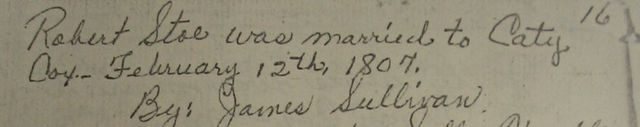 16
Robert Stoe was married to Caty
Cox- February 12th, 1807.
By: James Sullivan.